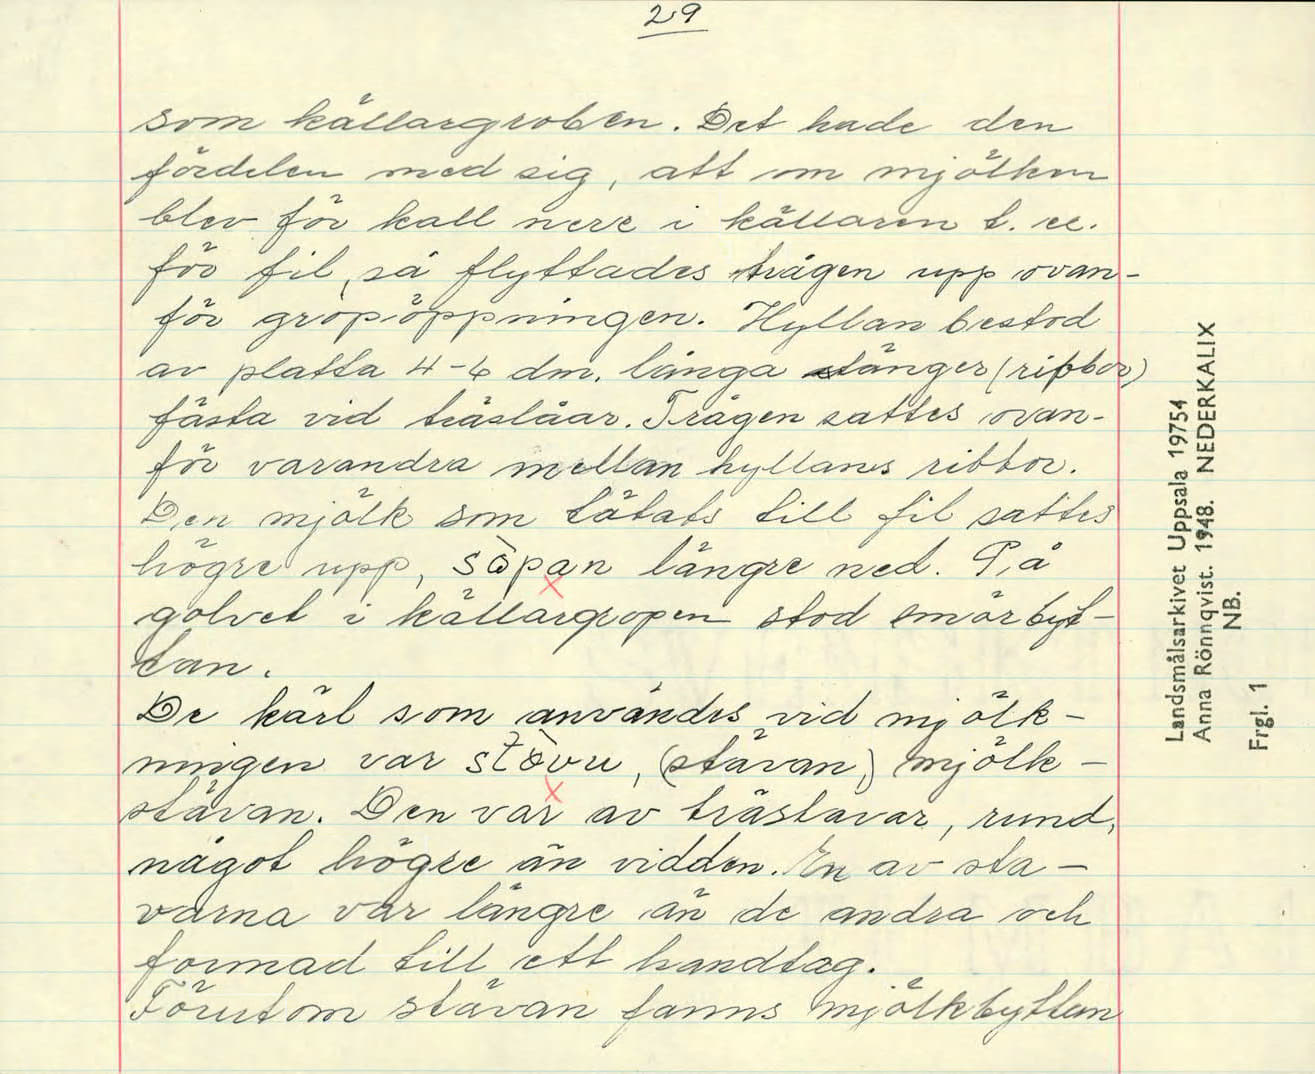 29
som källargroben. Det hade den
fördelen med sig, att om mjölken
blev för kall nere i källaren t. ex.
för fil, så flyttades trågen upp ovan-
för gropöppningen. Hyllan bestod
av platta 4-6 dm. långa stänger (ribbor)
fästa vid träslåar. Trågen sattes ovan-
för varandra mellan hyllans ribbor.
Den mjölk som tätats till fil sattes
högre upp, sòpan längre ned. På
golvet i källargropen stod smörbyt-
tan.
De kärl som användes vid mjölk-
ningen var stòvu, (stävan,) mjölk-
stävan. Den var av trästavar, rund,
något högre än vidden. En av sta-
varna var längre än de andra och
formad till ett handtag.
Förutom stävan fanns mjölkbyttan
Landsmålsarkivet Uppsala 19754
Anna Rönnqvist. 1948. NEDERKALIX
NB.
Frgl. 1